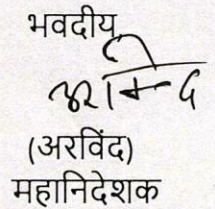 भवदीय,
अरविन्द
(अरविंद)
महानिदेशक